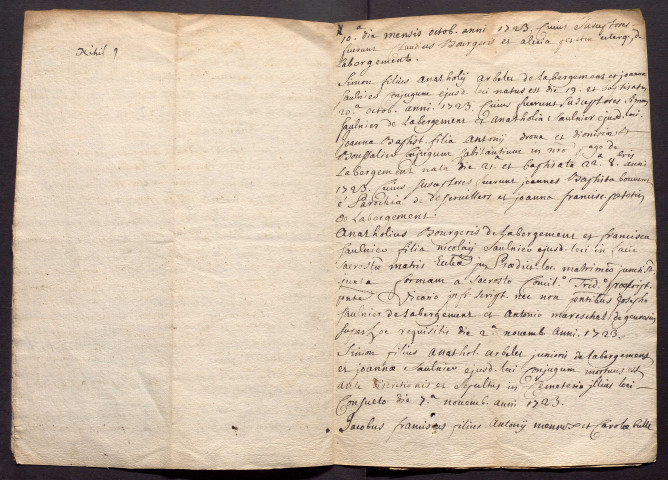 Nihil
10.a die mensis octob. anni 1723. huius susceptores
fuerunt Claudius Bourgeris et alexia uterq. de
labergement.
Simon filius Anatholij arbelet de labergement et joannæ
saulnier conjugum ejusd. loci natus est die 19. et baptisatus
20.a octob. anni 1723. huius fuerunt susceptores Simon
saulnier de labergement et anatholia saulnier ejusd. loci.
joanna Baptist. filia Antonij et dionisiæ
conjugum habitantium in
labergement nata die 21.a et baptisata 22. 8. anni
1723. huius susceptores fuerunt joannes Baptista
è Parochia de et joanna francisc. petetin
de labergement.
Anatholius Bourgeris de labergement et francisca
saulnier filia nicolaij saulnier ejusd. loci in facie
sacrostæ matris matrimonio juncti st
juxta formam a sacrosto Concil.o Trid.o præscript.
Vicario infrascript. nec non josepho
saulnier de labergement et Antonio mareschal de
super hoc requisitis die 2.a novemb. anni 1723.
Simon filius anathol. arbelet junioris de labergement
et joannæ saulnier ejusd. loci conjugum mortuus est
ante et sepultus in Cemeterio illius loci
Consueto die 7.a novemb. anni 1723.
Jacobus franciscus filius Antonij et Carolæ